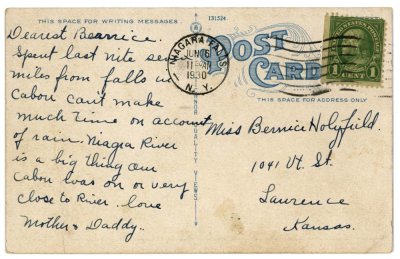 THIS SPACE FOR WRITING MESSAGES
131524
Dearest Bernice.
Spent last nite
miles from falls in
cabin can't make
much time on account
of rain. Niagra River
is a big thing our
cabin was on or very
close to River. love
Mother & Daddy.
NIAGARA FALLS
JUN 6
11 AM
1930
N.Y.
POST
CARD
THIS SPACE FOR ADDRESS ONLY
1 CENT 1
Miss Bernice Holyfield.
1041 Vt. St.
Lawrence
Kansas.
QUALITY VIEWS